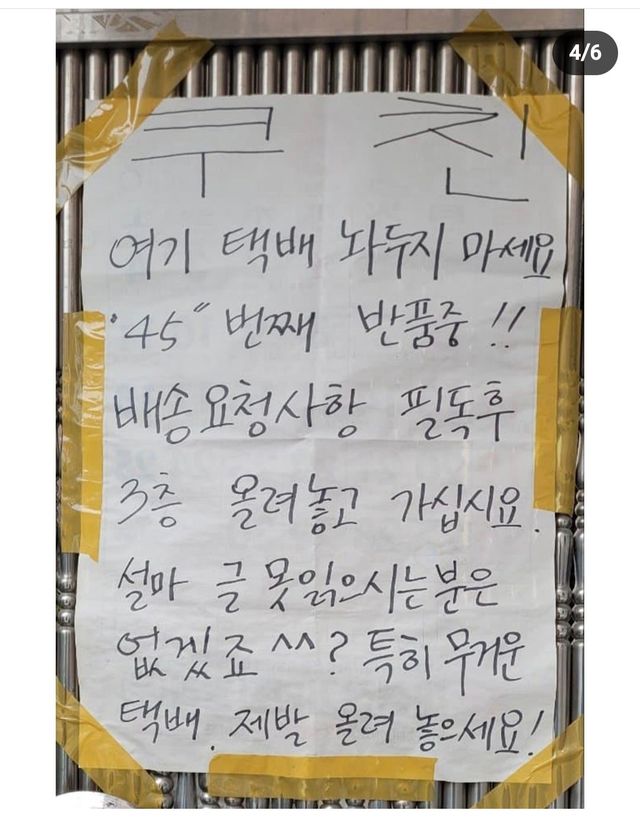 4/6
쿠 친
여기 택배 놔두지 마세요
"45" 번째 반품중 !!
배송요청사항 필독후
3층 올려놓고 가십시요.
설마 글 못읽으시는분은
없겠죠 ^^? 특히 무거운
택배. 제발 올려 놓으세요!